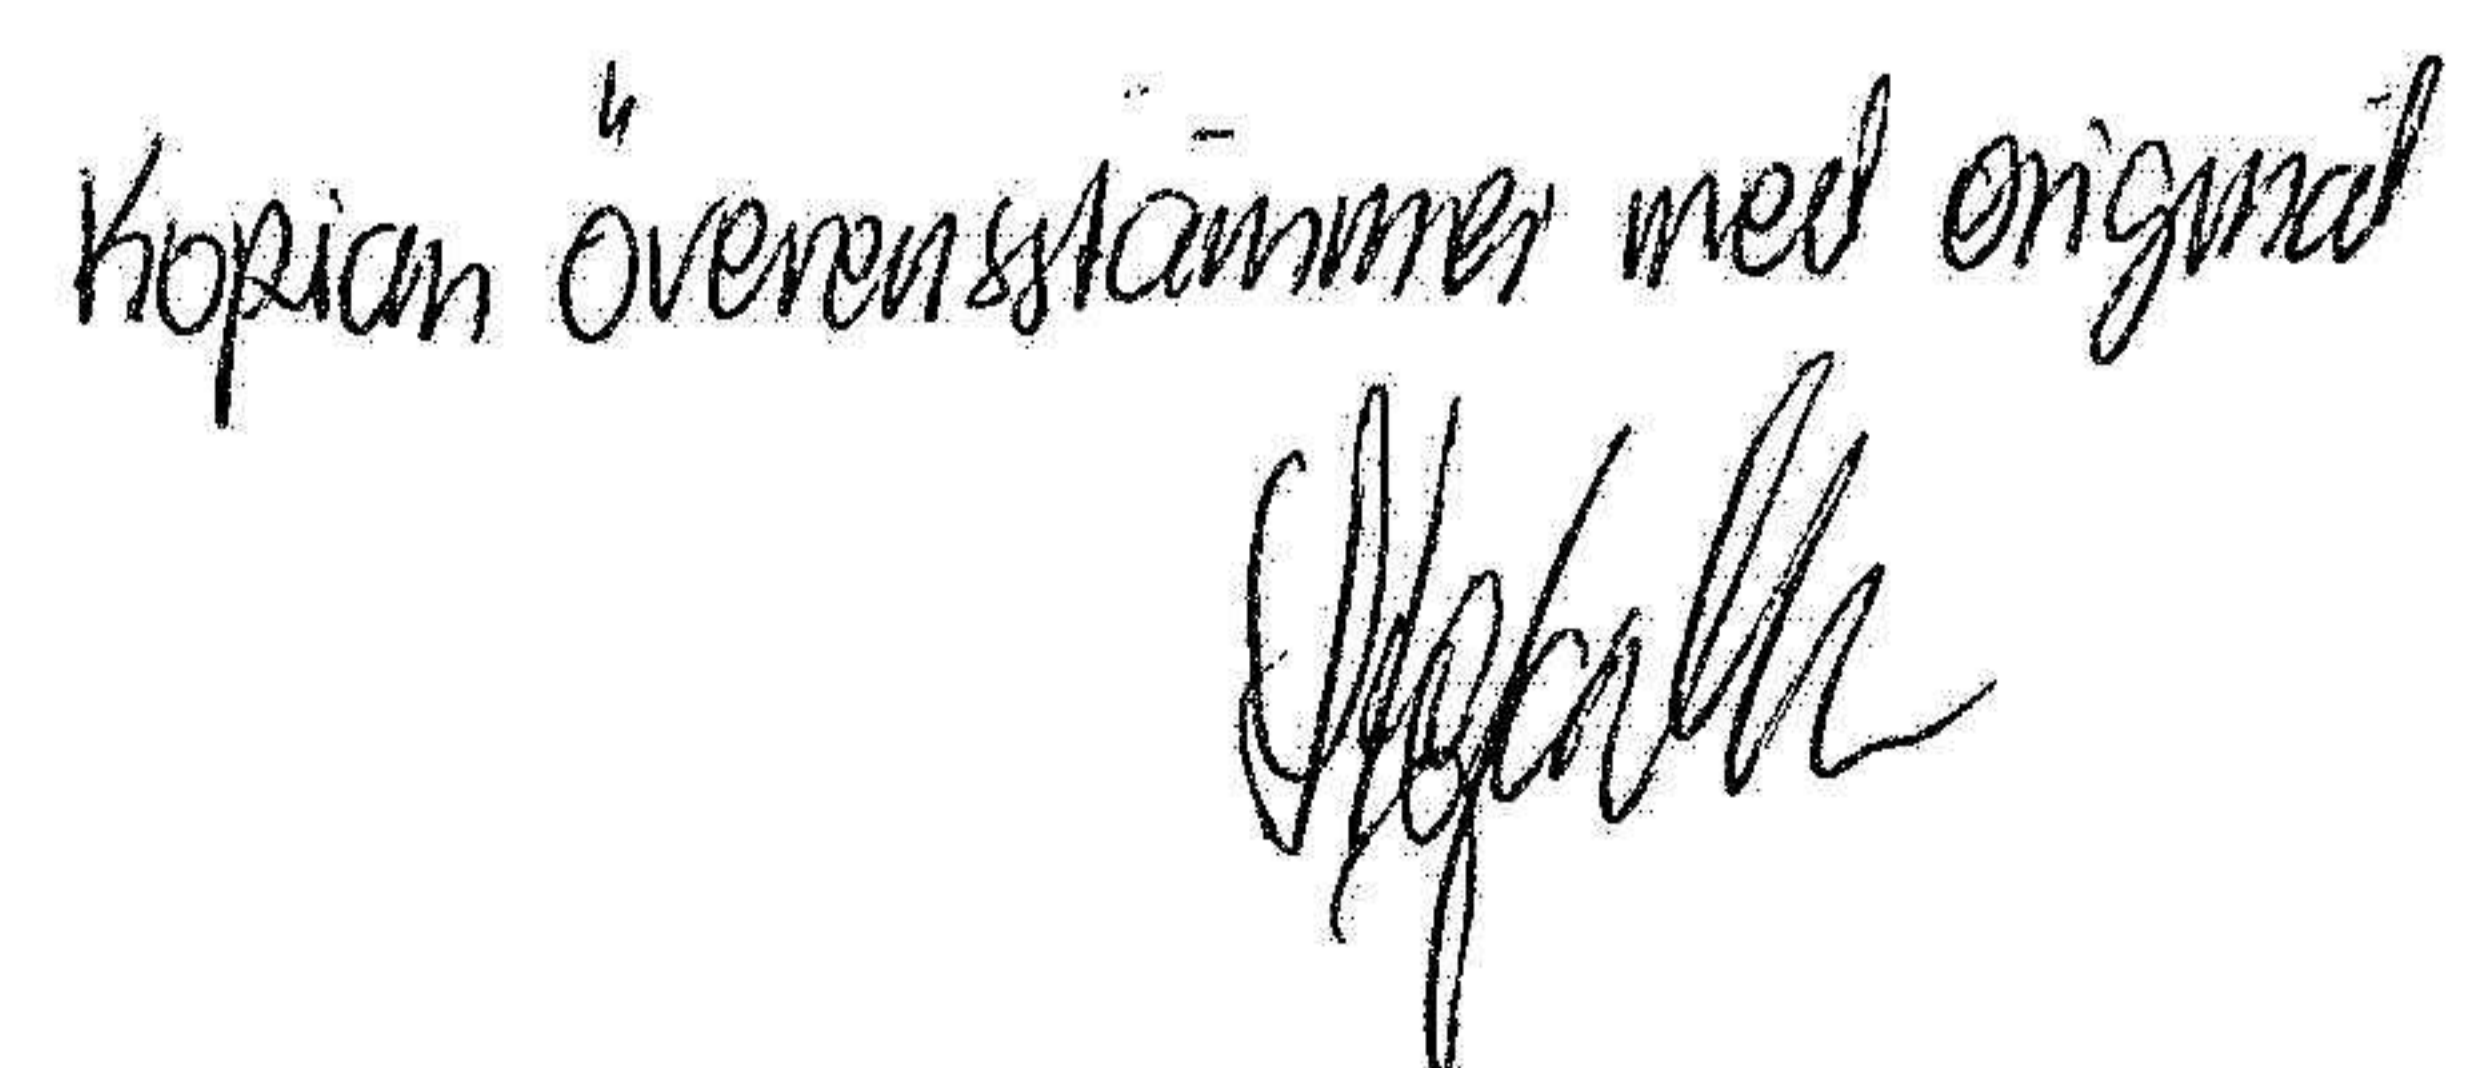 Kopian överensstämmer med original